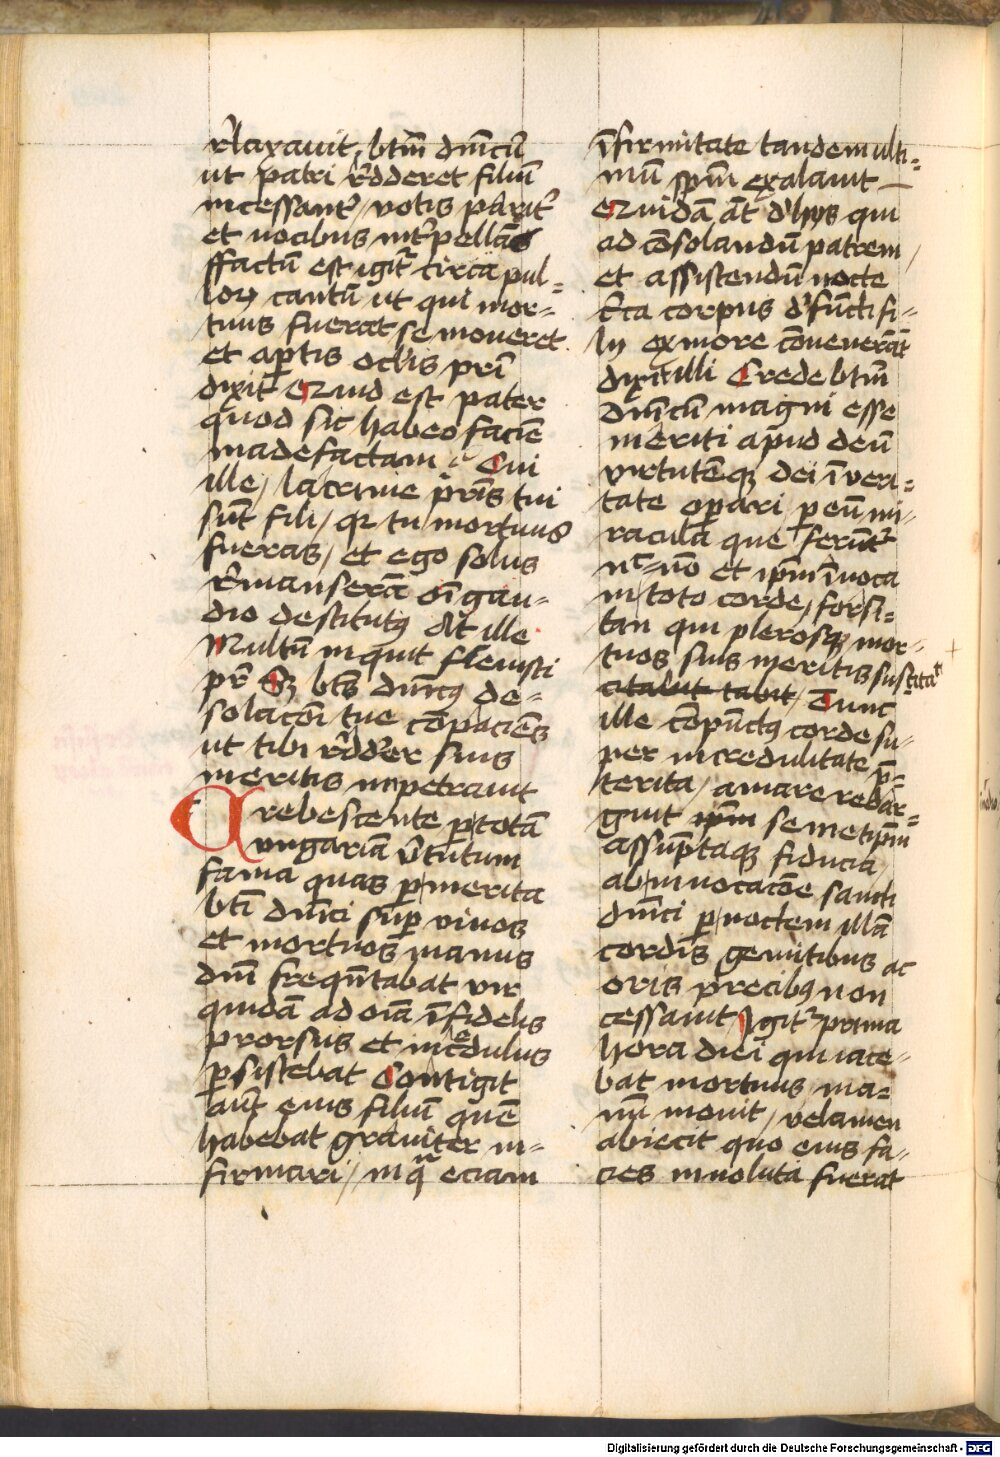 rͤlaxauit, btm̄ dn̄icū
ut patri rͤdderet filiū
incessant᷑ / votis parit᷑
et uocibus int᷑pellās
ffactū est igit᷑ circa pul=
loꝝ cantū ut qui mor=
tuus fuerat se moueret
et aꝑtis oclis pr̄i
dixit Quid est pater
quod sic habeo faciē
madefactam / Cui
ille / lacrime pr̄is tui
sūt fili / qꝛ tu mortuus
fueras / et ego solus
rͤmanserā oī gau=
dio destitutꝯ At ille
Multū inquit fleuisti
pr̄ Sꝫ bts̄ dn̄icꝯ de=
solacōi tue cōpaciēs
ut tibi rͤdder̄ suis
meritis inpetrauit
Crebescente ꝑ totā
vngariā v̄tutum
fama quas ꝑ merita
bti dn̄ici suꝑ viuos
et mortuos manus
dn̄i freqn̄tabat vir
quidā ad oīa īfidelis
prorsus et incͤdulus
ꝑsistebat Contigit
aūt eius filiū quē
habebat grauiter in=
firmari / in qͣ eciam
īfirmitate tandem ulti=
mū spm̄ exalauit
Quidā āt d' hijs qui
ad cōsolandū patrem /
et assistendū nocte
c̄ca corpus d'fūcti fi=
lij ex more cōuenerāt
dixit illi Crede btm̄
dn̄icū magni esse
meriti apud deū
virtutēqꝫ dei ī veri=
tate oꝑari ꝑ eū mi=
racula que ferūt᷑
nͨ nō et ip̄m īuoca
in toto corde, forsi=
tan qui plerosqꝫ mor=
tuos suis meritis suscitaͭ
citauit tabit, Tunc
ille cōpūctꝯ corde su=
per incredulitate p̄=
terita / amare redar=
guit ip̄m semetip̄m
assūptaqꝫ fiducia /
ab inuocacōe sancti
dn̄ici ꝑ noctem illā
cordis gemitibus ac
oris precibꝯ non
cessauit Igit᷑ prima
hora diei qui iace=
bat mortuus ma=
nū mouit / velamen
abiecit quo eius fa=
cies inuoluta fuerat
Digitalisierung gefördert durch die Deutsche Forschungsgemeinschaft - DFG